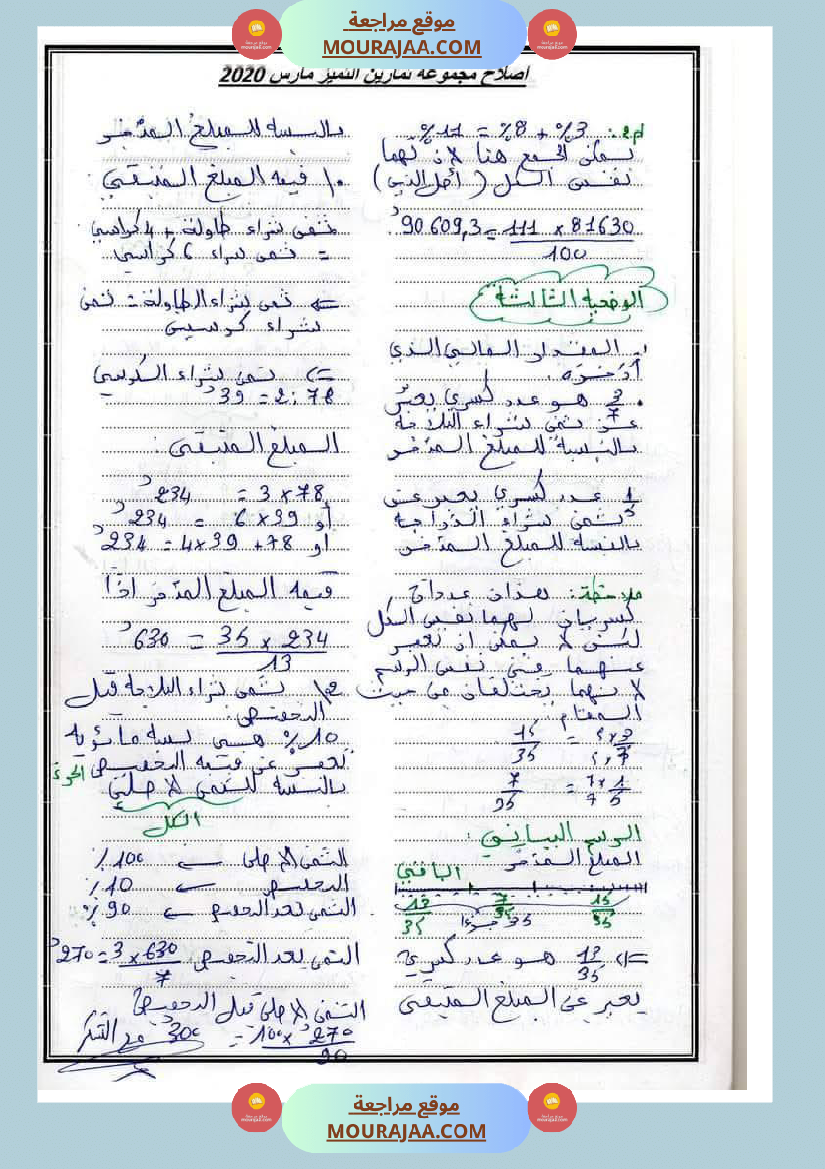 موقع مراجعة
MOURAJAA.COM
اصلاح مجموعة تمارين التميز مارس 2020
3% + 8% = 11%
يمكن الجمع هنا لان لهما
نفس الكل (أصل الدين)
81630 × 111 = 90 609,3 د
100
الوضعية الثالثة
المقدار المالي الذي
أدخره.
3/7 هو عدد كسري يعبر
عن ثمن شراء الثلاجة
بالنسبة للمبلغ المدخر
1/5 عدد كسري يعبر عن
ثمن شراء الدراجة
بالنسبة للمبلغ المدخر
ملاحظة: هذان عددان
كسريان لهما نفس الكل
لكن لا يمكن ان نعبر
عنهما في نفس الرسم
لأنهما يختلفان من حيث
المقام
3×5 = 15
7×5 35
1×7 = 7
5×7 35
الرسم البياني:
المبلغ المدخر
الباقي
15/35 7/35 13/35
35 جزءا
=> 13/35 هو عدد كسري
يعبر عن المبلغ المتبقي
بالنسبة للمبلغ المدخر
قيمة المبلغ المتبقي:
ثمن شراء طاولة + 4 كراسي
= ثمن شراء 6 كراسي
<= ثمن شراء الطاولة = ثمن
شراء كرسيين
=> ثمن شراء الكرسي
78 : 2 = 39 د
المبلغ المتبقي:
78 × 3 = 234 د
أو 39 × 6 = 234 د
أو 78 + 39×4 = 234 د
قيمة المبلغ المدخر اذا
234 × 35 = 630 د
13
2) ثمن شراء الثلاجة قبل
التخفيض:
10% هي نسبة مائوية
تعبر عن قيمة التخفيض الجزء
بالنسبة للثمن الاصلي
الكل
الثمن الاصلي ← 100%
التخفيض ← 10%
الثمن بعد التخفيض ← 90%
الثمن بعد التخفيض 630 × 3 = 270 د
7
الثمن الاصلي قبل التخفيض
270 × 100 = 300 د مع الشكر
90
موقع مراجعة
MOURAJAA.COM